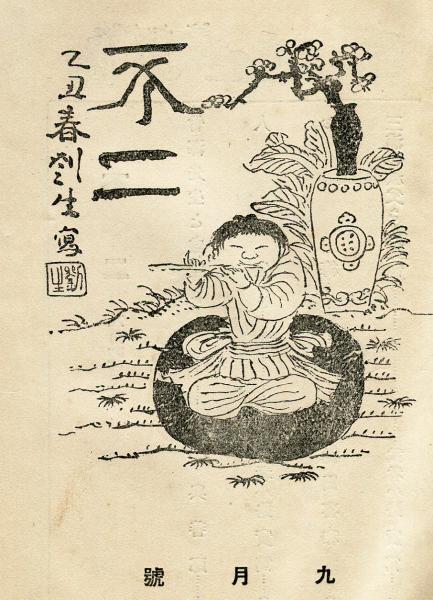 不二
乙丑春劉生寫
劉生
九月號